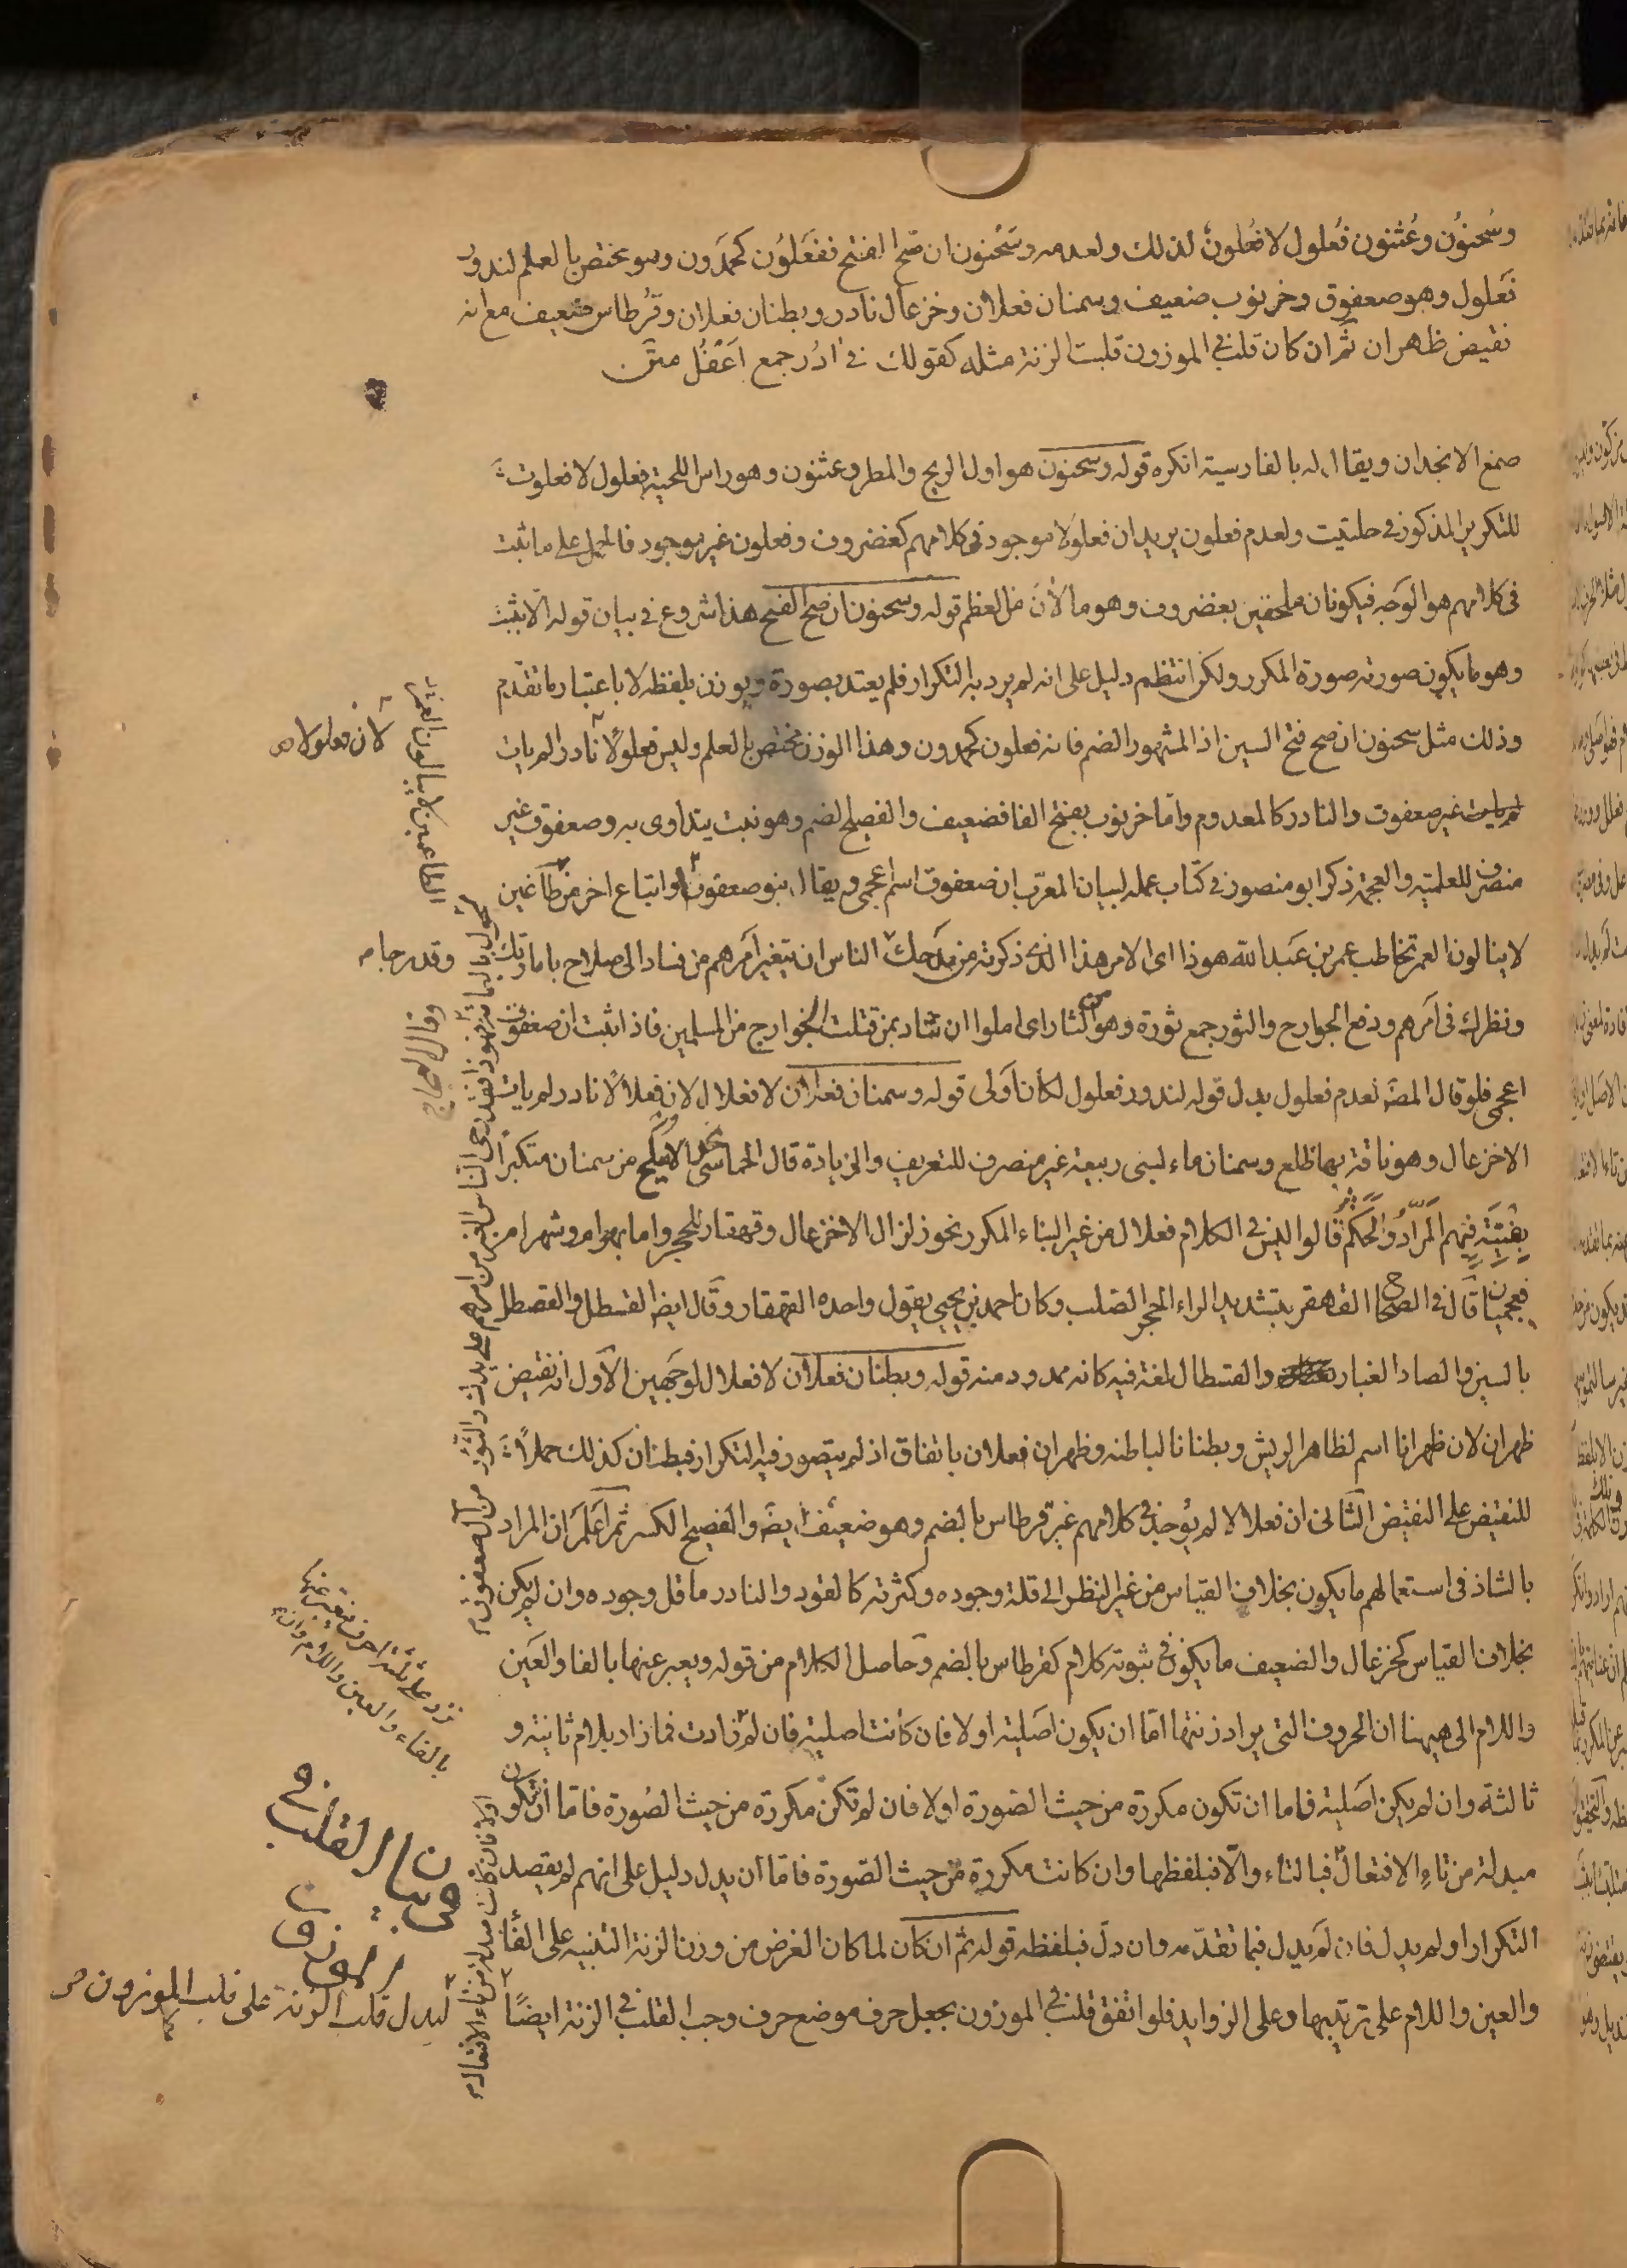 وسُحنوُن وعُثنون فُعلول لا فُعلونٌ لذلك ولعدمه وسَحْنون ان صَحّ الفتح ففَعلُون كحَمدون وهو مختص بالعلم لندور
فَعلول وهو صعفوق وخرنوب ضعيف وسمنان فعلان وخزعال نادر وبطنان فعلان وقُرطاس ضعيف مع انه
نقيض ظهران ثم ان كان قلب في الموزون قلبت الزنة مثله كقولك في ادُر جمع اَعفُل متن
صمغ الانجدان ويقال له بالفارسية انكره قوله وسحنون هو اول الريح والمطر وعثنون وهو راس اللحية فعلول لا فعلون
للتكرير المذكور في حلتيت ولعدم فعلون يريد ان فعلولا موجود في كلامهم كغضروف وفعلون غير موجود فالحمل على ما ثبت
في كلامهم هو الوجه فيكونان ملحقين بغضروف وهو ما لانَ من العظم قوله وسحنون ان صح الفتح هذا شروع في بيان قوله الا بثبت
وهو ما يكون صورته صورة المكرر ولكن انتظم دليل على انه لم يرد به التكرار فلم يعتد بصورة ويوزن بلفظه لا باعتبار ما تقدم
وذلك مثل سحنون ان صح فتح السين اذ المشهور الضم فانه فعلون كحمدون وهذا الوزن مختص بالعلم وليس فعلولاً نادر الم يات
غير صعفوق والنادر كالمعدوم واما خرنوب بفتح الفا فضعيف والفصيح الضم وهو نبت يتداوى به وصعفوق غير
منصرف للعلمية والعجمة ذكر ابو منصور في كتاب عمله لبيان المعرب ان صعفوق اسم اعجمى ويقال بنو صعفوق اواتباع اخر من طاغين
لا ينالون العمر تخاطب عمر بن عبد الله هوذا اى الامر هذا الذى ذكرته من مدحك الناس ان يتغير امرهم من فساد الى صلاح بامارتك
ونظرك فى امرهم ودفع الخوارج والثور جمع ثورة وهو الثار اى املوا ان تثار بمن قتلت الخوارج من المسلمين فاذا ثبت ان صعفوق
اعجمى فلو قال المصنف لعدم فعلول بدل قوله لندور فعلول لكان اولى قوله وسمنان فعلان لا فعلال لان فعلالاً نادر لم يات
الا خزعال وهو ناقة بها ظلع وسمنان ماء لبنى ربيعة غير منصرف للتعريف والزيادة قال الحماسى نحو الاميلح من سمنان مبتكراً
بفتية فيهم المرّار والحكم قالوا ليس فى الكلام فعلال من غير البناء المكرر نحو زلزال الا خزعال وقهقار للحجر واما بهرام وشهرام
فعجميان قال فى الصحاح القهقر بتشديد الراء الحجر الصلب وكان احمد بن يحيى يقول واحده القهقار وقال ايضا القسطل والقصطل
بالسين والصاد الغبار والقسطال لغة فيه كانه ممدود منه قوله وبطنان فعلان لا فعلال لوجهين الاول انه نقيض
ظهران لان ظهرانا اسم لظاهر الريش وبطنانا لباطنه وظهران فعلان باتفاق اذ لم يتصور فيه التكرار فبطنان كذلك حملاً
للنقيض على النقيض الثانى ان فعلالا لم يوجد فى كلامهم غير قرطاس بالضم وهو ضعيف ايضا والفصيح الكسر ثم اعلم ان المراد
بالشاذ فى استعمالهم ما يكون بخلاف القياس من غير النظر الى قلة وجوده وكثرته كالقود والنادر ما قل وجوده وان لم يكن
بخلاف القياس كخزعال والضعيف ما يكون فى ثبوته كلام كقرطاس بالضم وحاصل الكلام من قوله ويعبر عنها بالفا والعين
واللام الى هيهنا ان الحروف التى يراد زنتها اما ان يكون اصلية او لا فان كانت اصلية فان لم زادت فما زاد بلام ثانية و
ثالثة وان لم يكن اصلية فاما ان تكون مكررة من حيث الصورة او لا فان لم تكن مكررة من حيث الصورة فاما ان تكون
مبدلة من تاء الافتعال فبالتاء والا فبلفظها وان كانت مكررة من حيث الصورة فاما ان يدل دليل على انهم لم يقصد
التكرار او لم يدل فان لم يدل فبما تقدمه وان دل فبلفظه قوله ثم ان كان لما كان الغرض من وزن الزنة التنبيه على الفا
والعين واللام على ترتيبها وعلى الزوايد فلو اتفق قلب فى الموزون بجعل حرف موضع حرف وجب القلب فى الزنة ايضاً
لان فعلولا
الطاعين لا ينالون العمر
وقد رجا
وقال العجاج
تزد على ثلثة احرف فيعبر عنها
بالفاء والعين واللام وان
في بيان القلب في
الموزون
ليدل قلب الزنة على قلب الموزون